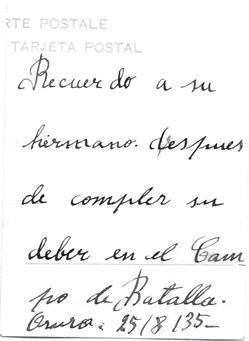 RTE POSTALE
TARJETA POSTAL
Recuerdo a su
hermano. despues
de compler su
deber en el Cam
po de Batalla.
Oruro. 25/8/35-